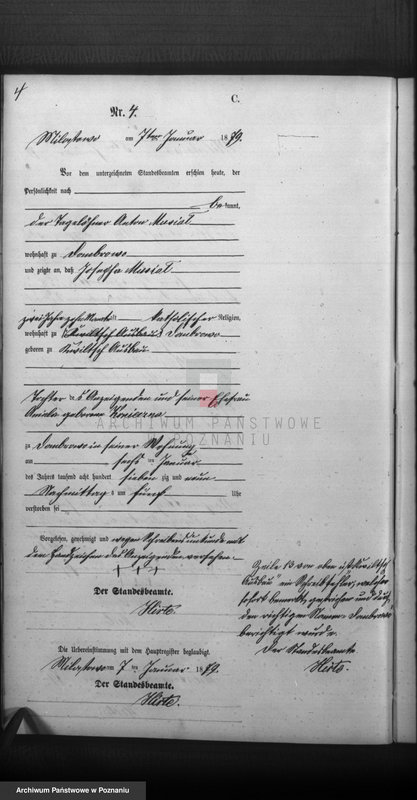 4
C.
Nr. 4.
Miloslawo am 7ten Januar 1879.
Vor dem unterzeichneten Standesbeamten erschien heute, der
Persönlichkeit nach
bekannt,
der Tagelöhner Anton Musial
wohnhaft zu Dombrowo
und zeigte an, daß Josepha Musial
zwei Jahre alt, katholischer Religion,
wohnhaft zu Dombrowo
geboren zu Kwiltsch Ausbau
Tochter des Anzeigenden und seiner Ehefrau
geborenen
zu Dombrowo in seiner Wohnung
am sechsten Januar
des Jahres tausend acht hundert siebenzig und neun
Nachmittag um fünf Uhr
verstorben sei
Vorgelesen, genehmigt und wegen Schreibensunkunde mit
den Handzeichen des Anzeigenden versehen.
+ + +
Der Standesbeamte.
Hirte.
Zeile 13 von oben ist "Kwiltsch
Ausbau" ein Schreibfehler, welcher
sofort bemerkt, gestrichen und durch
den richtigen Namen "Dombrowo"
berichtigt wurde.
Der Standesbeamte.
Hirte.
Die Uebereinstimmung mit dem Hauptregister beglaubigt.
am 7 ten Januar 1879.
Der Standesbeamte.
Hirte.
ARCHIWUM PAŃSTWOWE
W POZNANIU
Archiwum Państwowe w Poznaniu